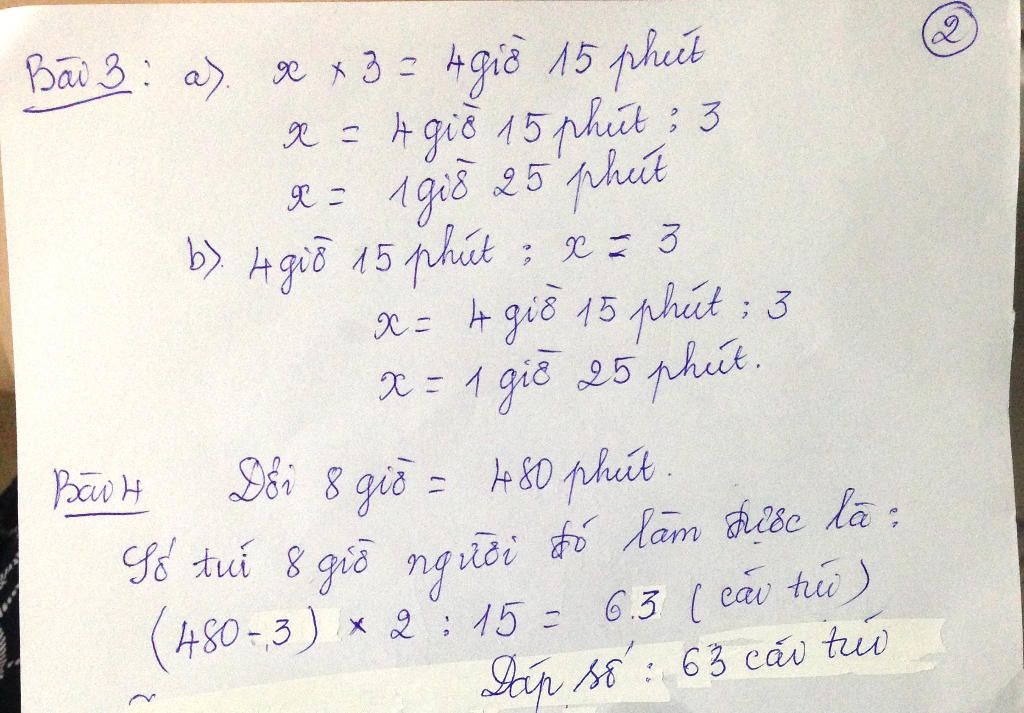 2
Bài 3 : a). x × 3 = 4 giờ 15 phút
x = 4 giờ 15 phút : 3
x = 1 giờ 25 phút
b). 4 giờ 15 phút : x = 3
x = 4 giờ 15 phút : 3
x = 1 giờ 25 phút.
Bài 4 Đổi 8 giờ = 480 phút.
Số túi 8 giờ người đó làm được là :
(480 - 3) × 2 : 15 = 63 (cái túi)
Đáp số : 63 cái túi